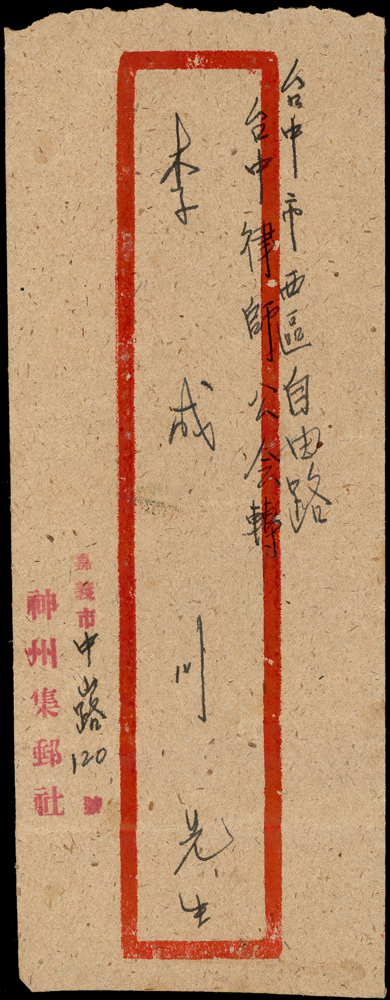 台中市西區自由路
台中律師公会轉
李成川先生
嘉義市中山路120號
神州集郵社